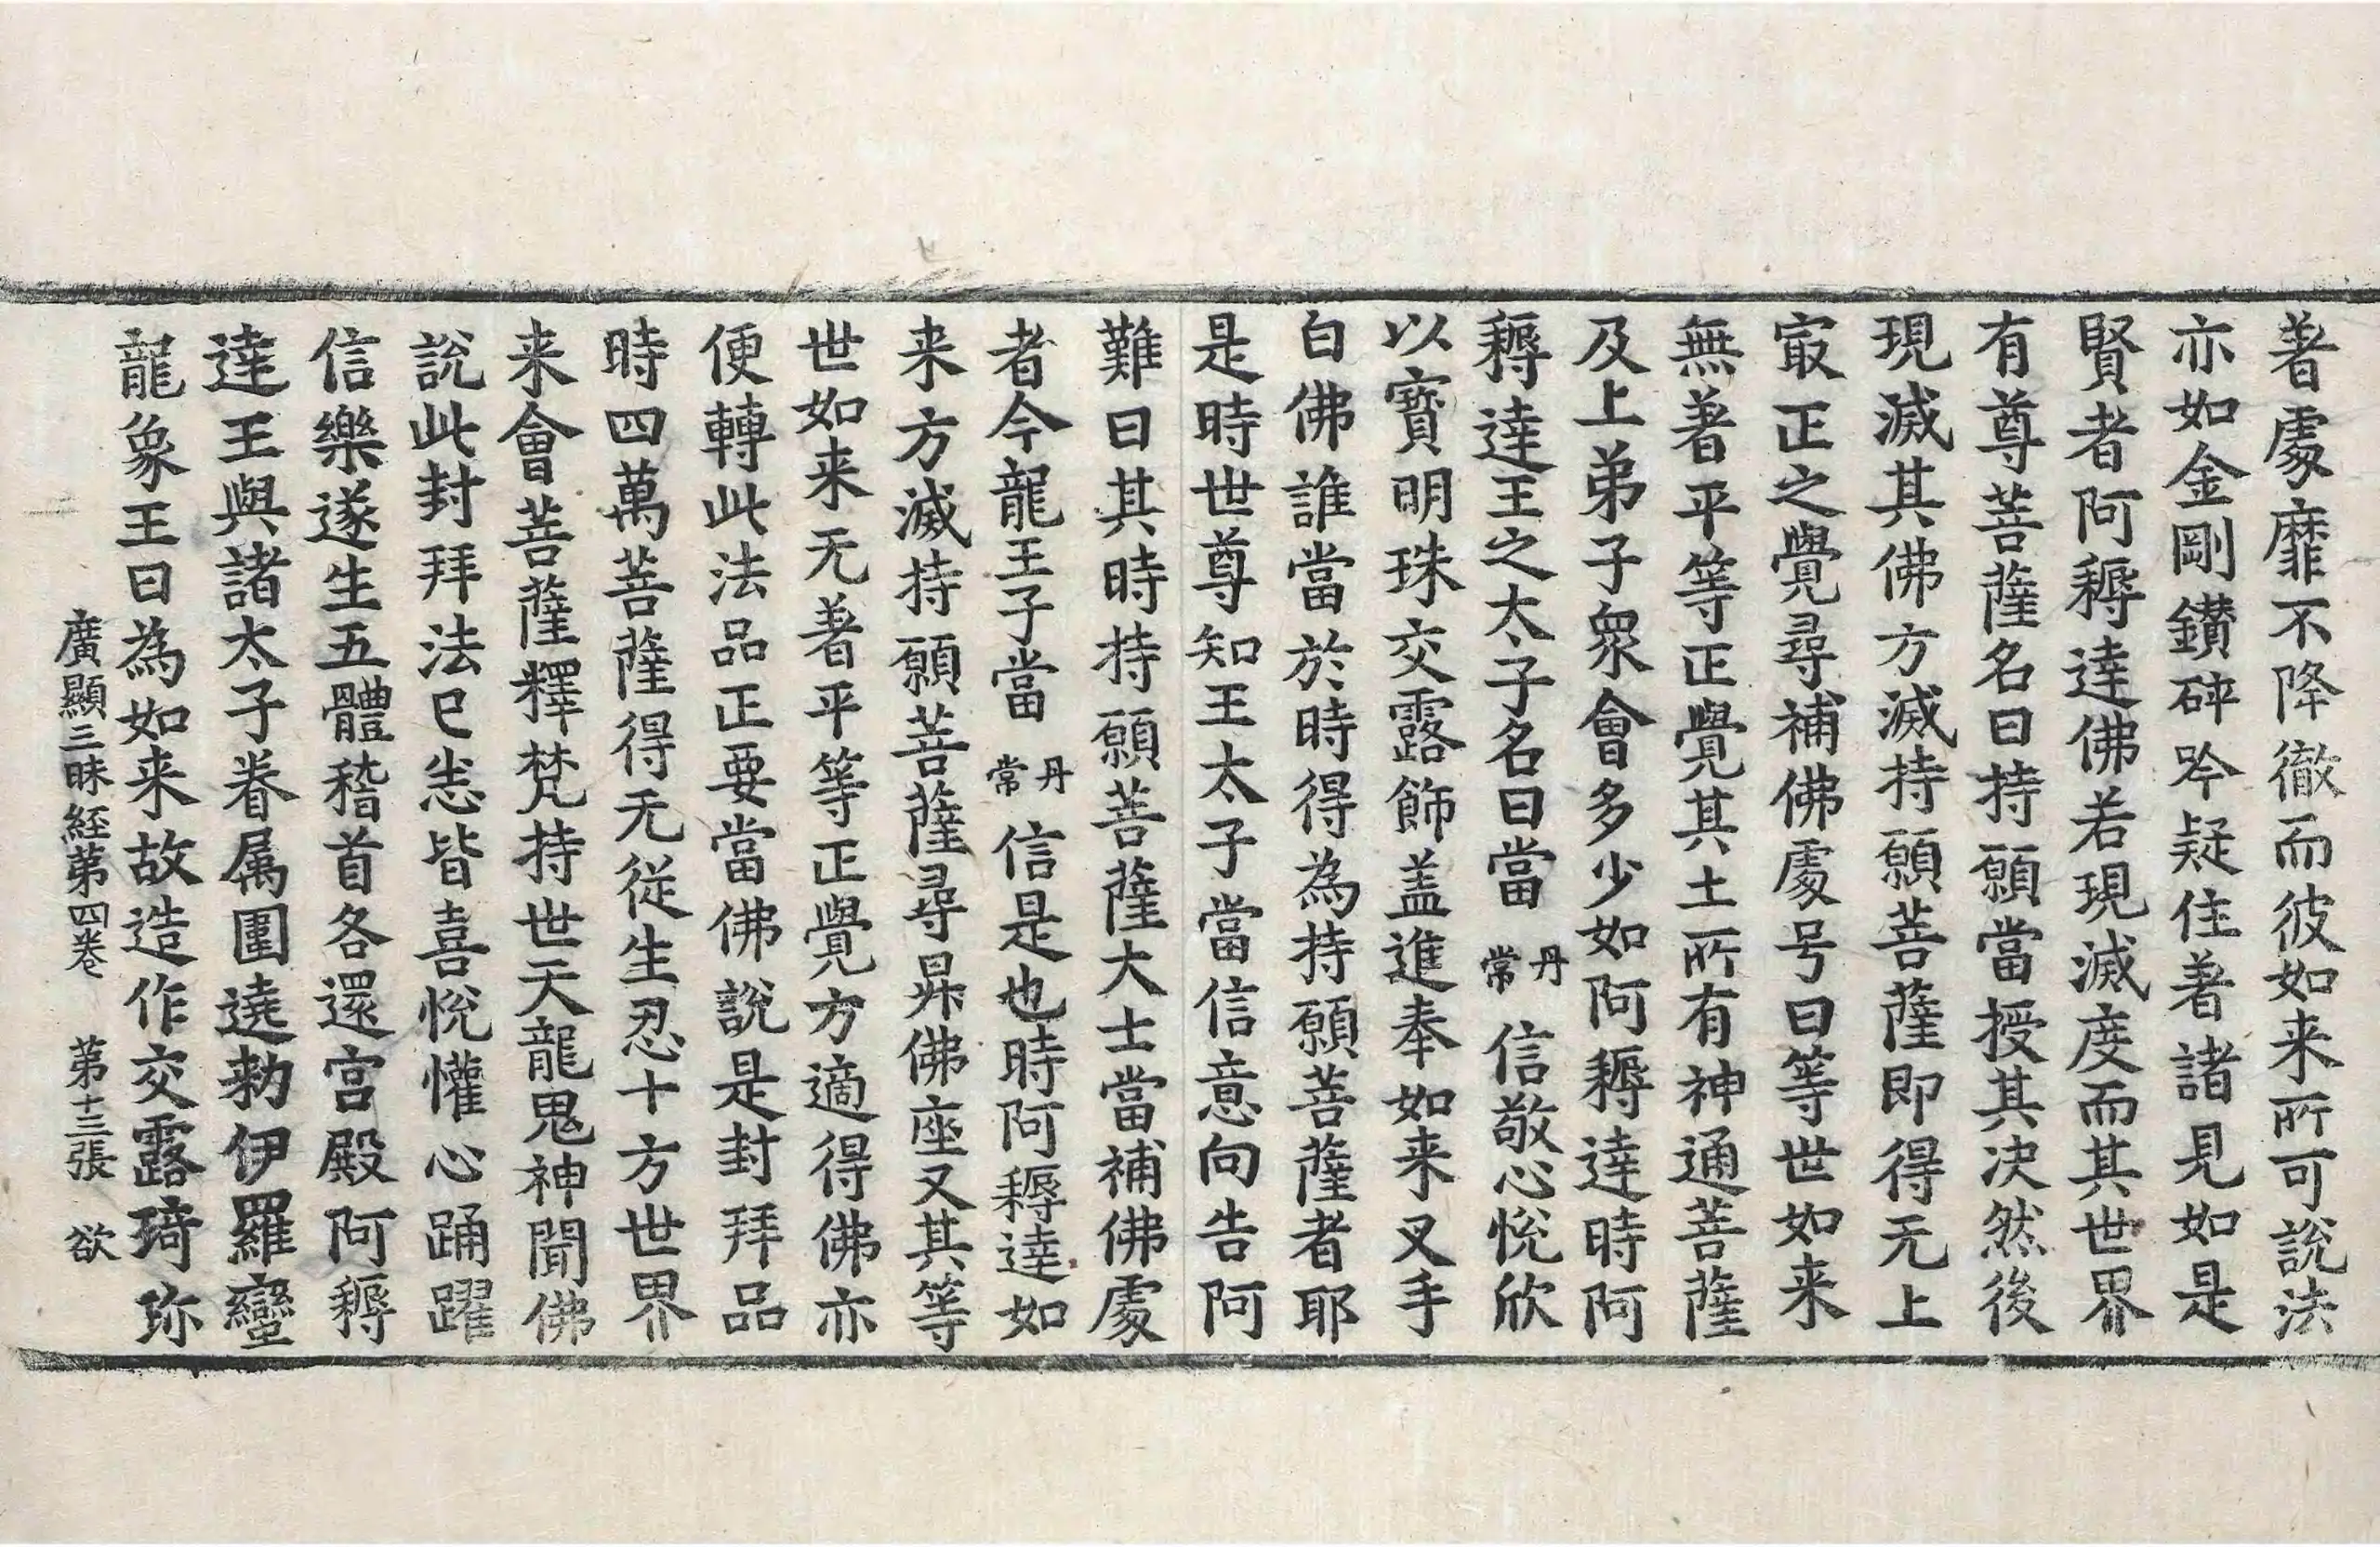 著處靡不降徹而彼如来所可說法
亦如金剛鑚碎吟疑住著諸見如是
賢者阿耨達佛若現滅度而其世界
有尊菩薩名曰持願當授其决然後
現滅其佛方滅持願菩薩即得无上
㝡正之覺尋補佛處号曰等世如来
無著平等正覺其土所有神通菩薩
及上弟子衆會多少如阿耨達時阿
耨達王之太子名曰當丹常信敬心悅欣
以寶明珠交露飾盖進奉如来叉手
白佛誰當於時得為持願菩薩者耶
是時世尊知王太子當信意向告阿
難曰其時持願菩薩大士當補佛處
者今龍王子當丹常信是也時阿耨達如
来方滅持願菩薩尋昇佛座又其等
世如来无著平等正覺方適得佛亦
便轉此法品正要當佛說是封拜品
時四萬菩薩得无從生忍十方世界
来會菩薩釋梵持世天龍鬼神聞佛
說此封拜法已恙皆喜悅懽心踊躍
信樂遂生五體稽首各還宫殿阿耨
達王與諸太子眷属圍遶勑伊羅蠻
龍象王曰為如来故造作交露琦珎
廣顯三昧経第四卷 第十三張 欲